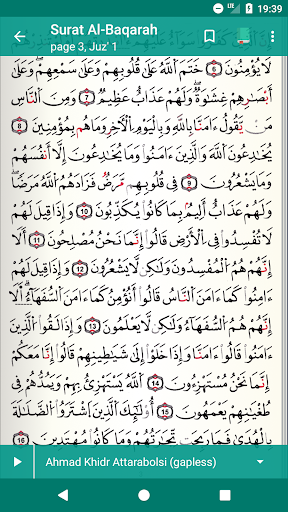 19:39
Surat Al-Baqarah
page 3, Juz' 1
لَا يُؤْمِنُونَ ٦ خَتَمَ ٱللَّهُ عَلَىٰ قُلُوبِهِمْ وَعَلَىٰ سَمْعِهِمْ وَعَلَىٰٓ
أَبْصَٰرِهِمْ غِشَٰوَةٌ وَلَهُمْ عَذَابٌ عَظِيمٌ ٧ وَمِنَ ٱلنَّاسِ
مَن يَقُولُ ءَامَنَّا بِٱللَّهِ وَبِٱلْيَوْمِ ٱلْءَاخِرِ وَمَا هُم بِمُؤْمِنِينَ ٨
يُخَٰدِعُونَ ٱللَّهَ وَٱلَّذِينَ ءَامَنُوا۟ وَمَا يَخْدَعُونَ إِلَّآ أَنفُسَهُمْ
وَمَا يَشْعُرُونَ ٩ فِى قُلُوبِهِم مَّرَضٌ فَزَادَهُمُ ٱللَّهُ مَرَضًا
وَلَهُمْ عَذَابٌ أَلِيمٌۢ بِمَا كَانُوا۟ يَكْذِبُونَ ١٠ وَإِذَا قِيلَ لَهُمْ
لَا تُفْسِدُوا۟ فِى ٱلْأَرْضِ قَالُوٓا۟ إِنَّمَا نَحْنُ مُصْلِحُونَ ١١
أَلَآ إِنَّهُمْ هُمُ ٱلْمُفْسِدُونَ وَلَٰكِن لَّا يَشْعُرُونَ ١٢ وَإِذَا قِيلَ لَهُمْ
ءَامِنُوا۟ كَمَآ ءَامَنَ ٱلنَّاسُ قَالُوٓا۟ أَنُؤْمِنُ كَمَآ ءَامَنَ ٱلسُّفَهَآءُ أَلَآ
إِنَّهُمْ هُمُ ٱلسُّفَهَآءُ وَلَٰكِن لَّا يَعْلَمُونَ ١٣ وَإِذَا لَقُوا۟
ٱلَّذِينَ ءَامَنُوا۟ قَالُوٓا۟ ءَامَنَّا وَإِذَا خَلَوْا۟ إِلَىٰ شَيَٰطِينِهِمْ قَالُوٓا۟ إِنَّا مَعَكُمْ
إِنَّمَا نَحْنُ مُسْتَهْزِءُونَ ١٤ ٱللَّهُ يَسْتَهْزِئُ بِهِمْ وَيَمُدُّهُمْ فِى
طُغْيَٰنِهِمْ يَعْمَهُونَ ١٥ أُو۟لَٰٓئِكَ ٱلَّذِينَ ٱشْتَرَوُا۟ ٱلضَّلَٰلَةَ
بِٱلْهُدَىٰ فَمَا رَبِحَت تِّجَٰرَتُهُمْ وَمَا كَانُوا۟ مُهْتَدِينَ ١٦
Ahmad Khidr Attarabolsi (gapless)